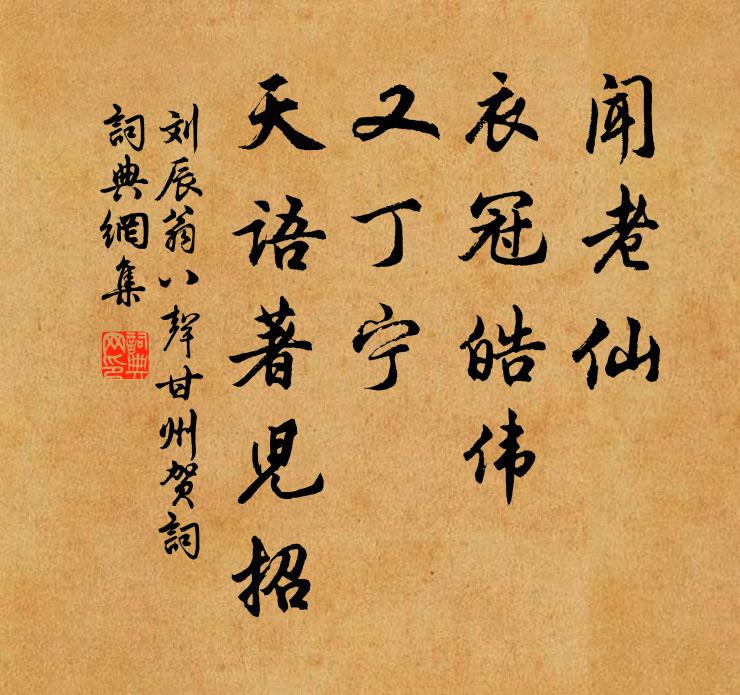 闻老仙
衣冠皓伟
又丁宁
天语著児招
刘辰翁八聲甘州贺詞
詞典網集
詞典网印